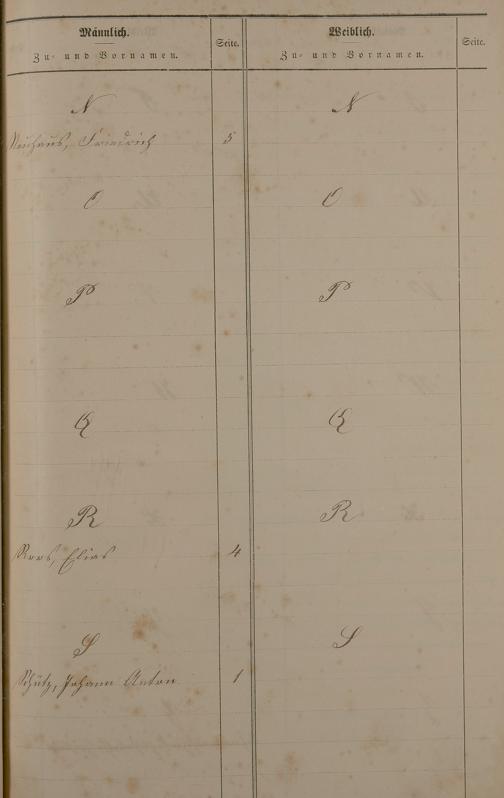 Männlich. Weiblich.
Zu- und Vornamen. Seite. Zu- und Vornamen. Seite.
N N
Neuhaus, Friedrich 5
O O
P P
Q Q
R R
Roos, Elias 4
S S
Schütz, Johann Anton 1